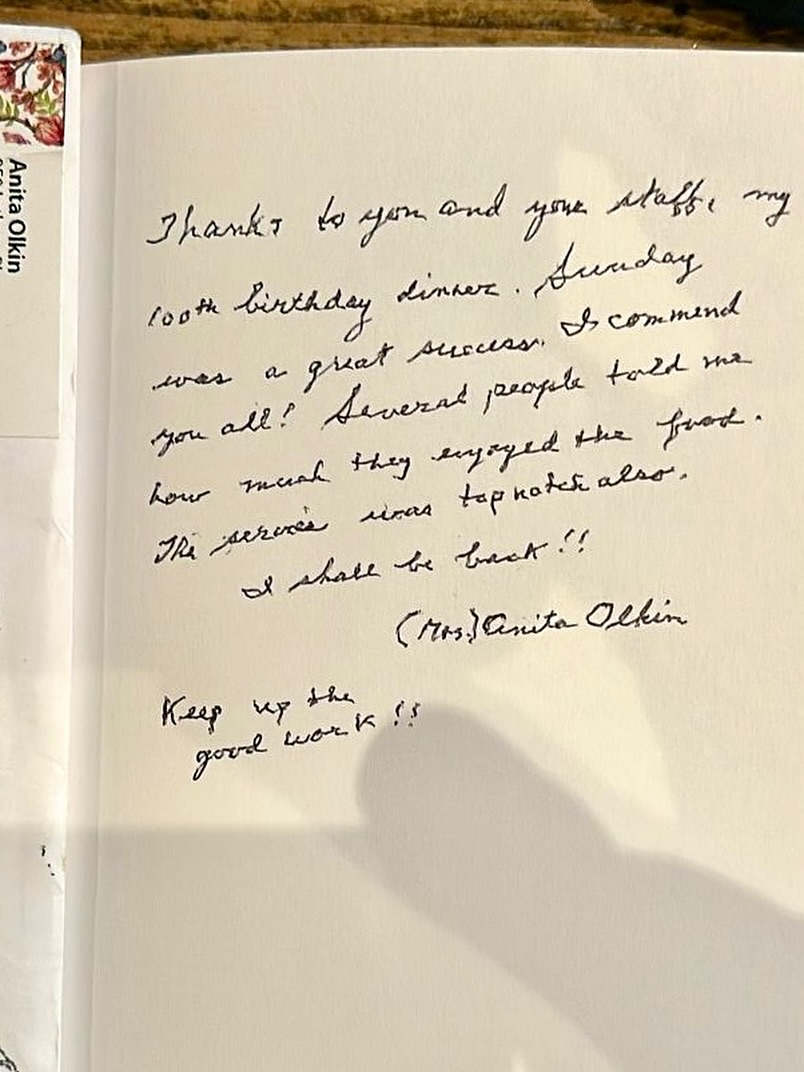 Anita Olkin
Thanks to you and your staff, my
100th birthday dinner. Sunday
was a great success. I commend
you all! Several people told me
how much they enjoyed the food.
The service was top notch also.
I shall be back!!
(Mrs.) Anita Olkin
Keep up the
good work!!